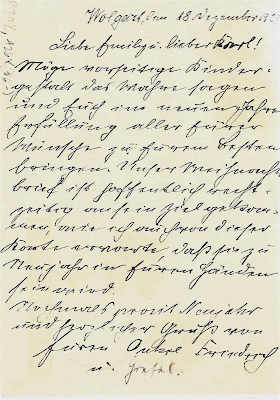 Wolgast, den 18 Dezember
Liebe Emily u. lieber Karl!
Möge vorseitige Kinder-
gestalt das Wahre sagen
und Euch im neuen Jahre
Erfüllung aller Eurer
Wünsche zu Eurem Besten
bringen. Unser Weihnachts
brief ist hoffentlich recht
zeitig an sein Ziel gekom-
men, wie ich auch von dieser
Karte erwarte daß sie zu
Neujahr in Euren Händen
sein wird.
Nochmals prosit Neujahr
und herzlicher Gruß von
Euren Onkel Friedrich
u. Gretel.